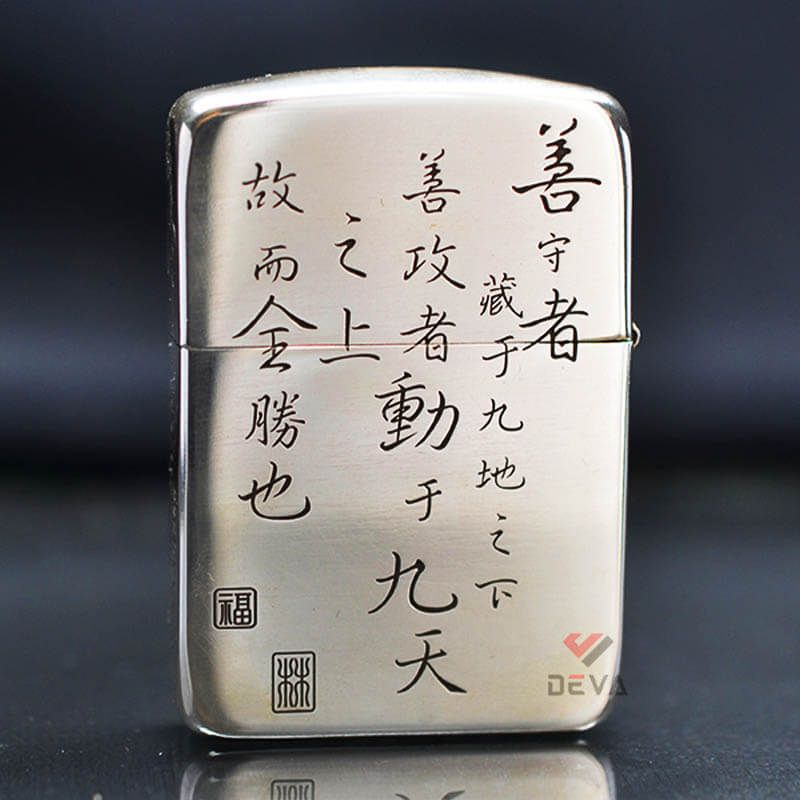 善守者
藏于九地之下
善攻者動于九天
之上
故而全勝也
福
林
DEVA